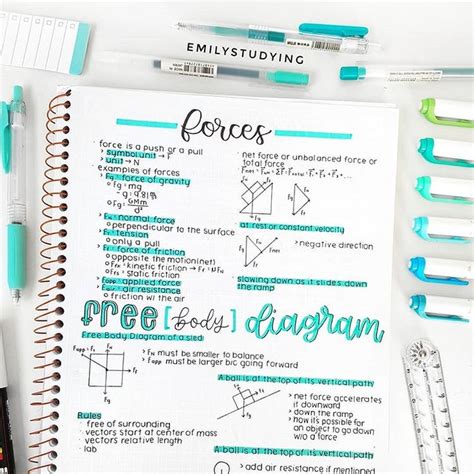 EMILYSTUDYING
forces
› force is a push or a pull
› symbol unit → F
› unit → N
› examples of forces
› Fg - force of gravity
o Fg = mg
- g = 9.81
o Fg = GMm
d²
› FN - normal force
o perpendicular to the surface
› FT - tension
o only a pull
› Ff - force of friction
o opposite the motion (net)
o FfK = kinetic friction →
= static friction
› Fapp = applied force
› Fair - air resistance
o friction w/ the air
› net force or unbalanced force or
total force
at rest or constant velocity
› negative direction
slowing down as it slides down
the ramp
FREE [body] diagram
Free Body Diagram of a sled
› FN must be smaller to balance
› Fapp must be larger b/c going forward
Rules
› free of surrounding
› vectors start at center of mass
› vectors relative length
› lab
A ball is at the top of its vertical path
› net force accelerates
it downward
› down the ramp
› how it's possible for
an object to go down
w/o a force
A ball is at the top of its vertical path
› add air resistance if mentioned